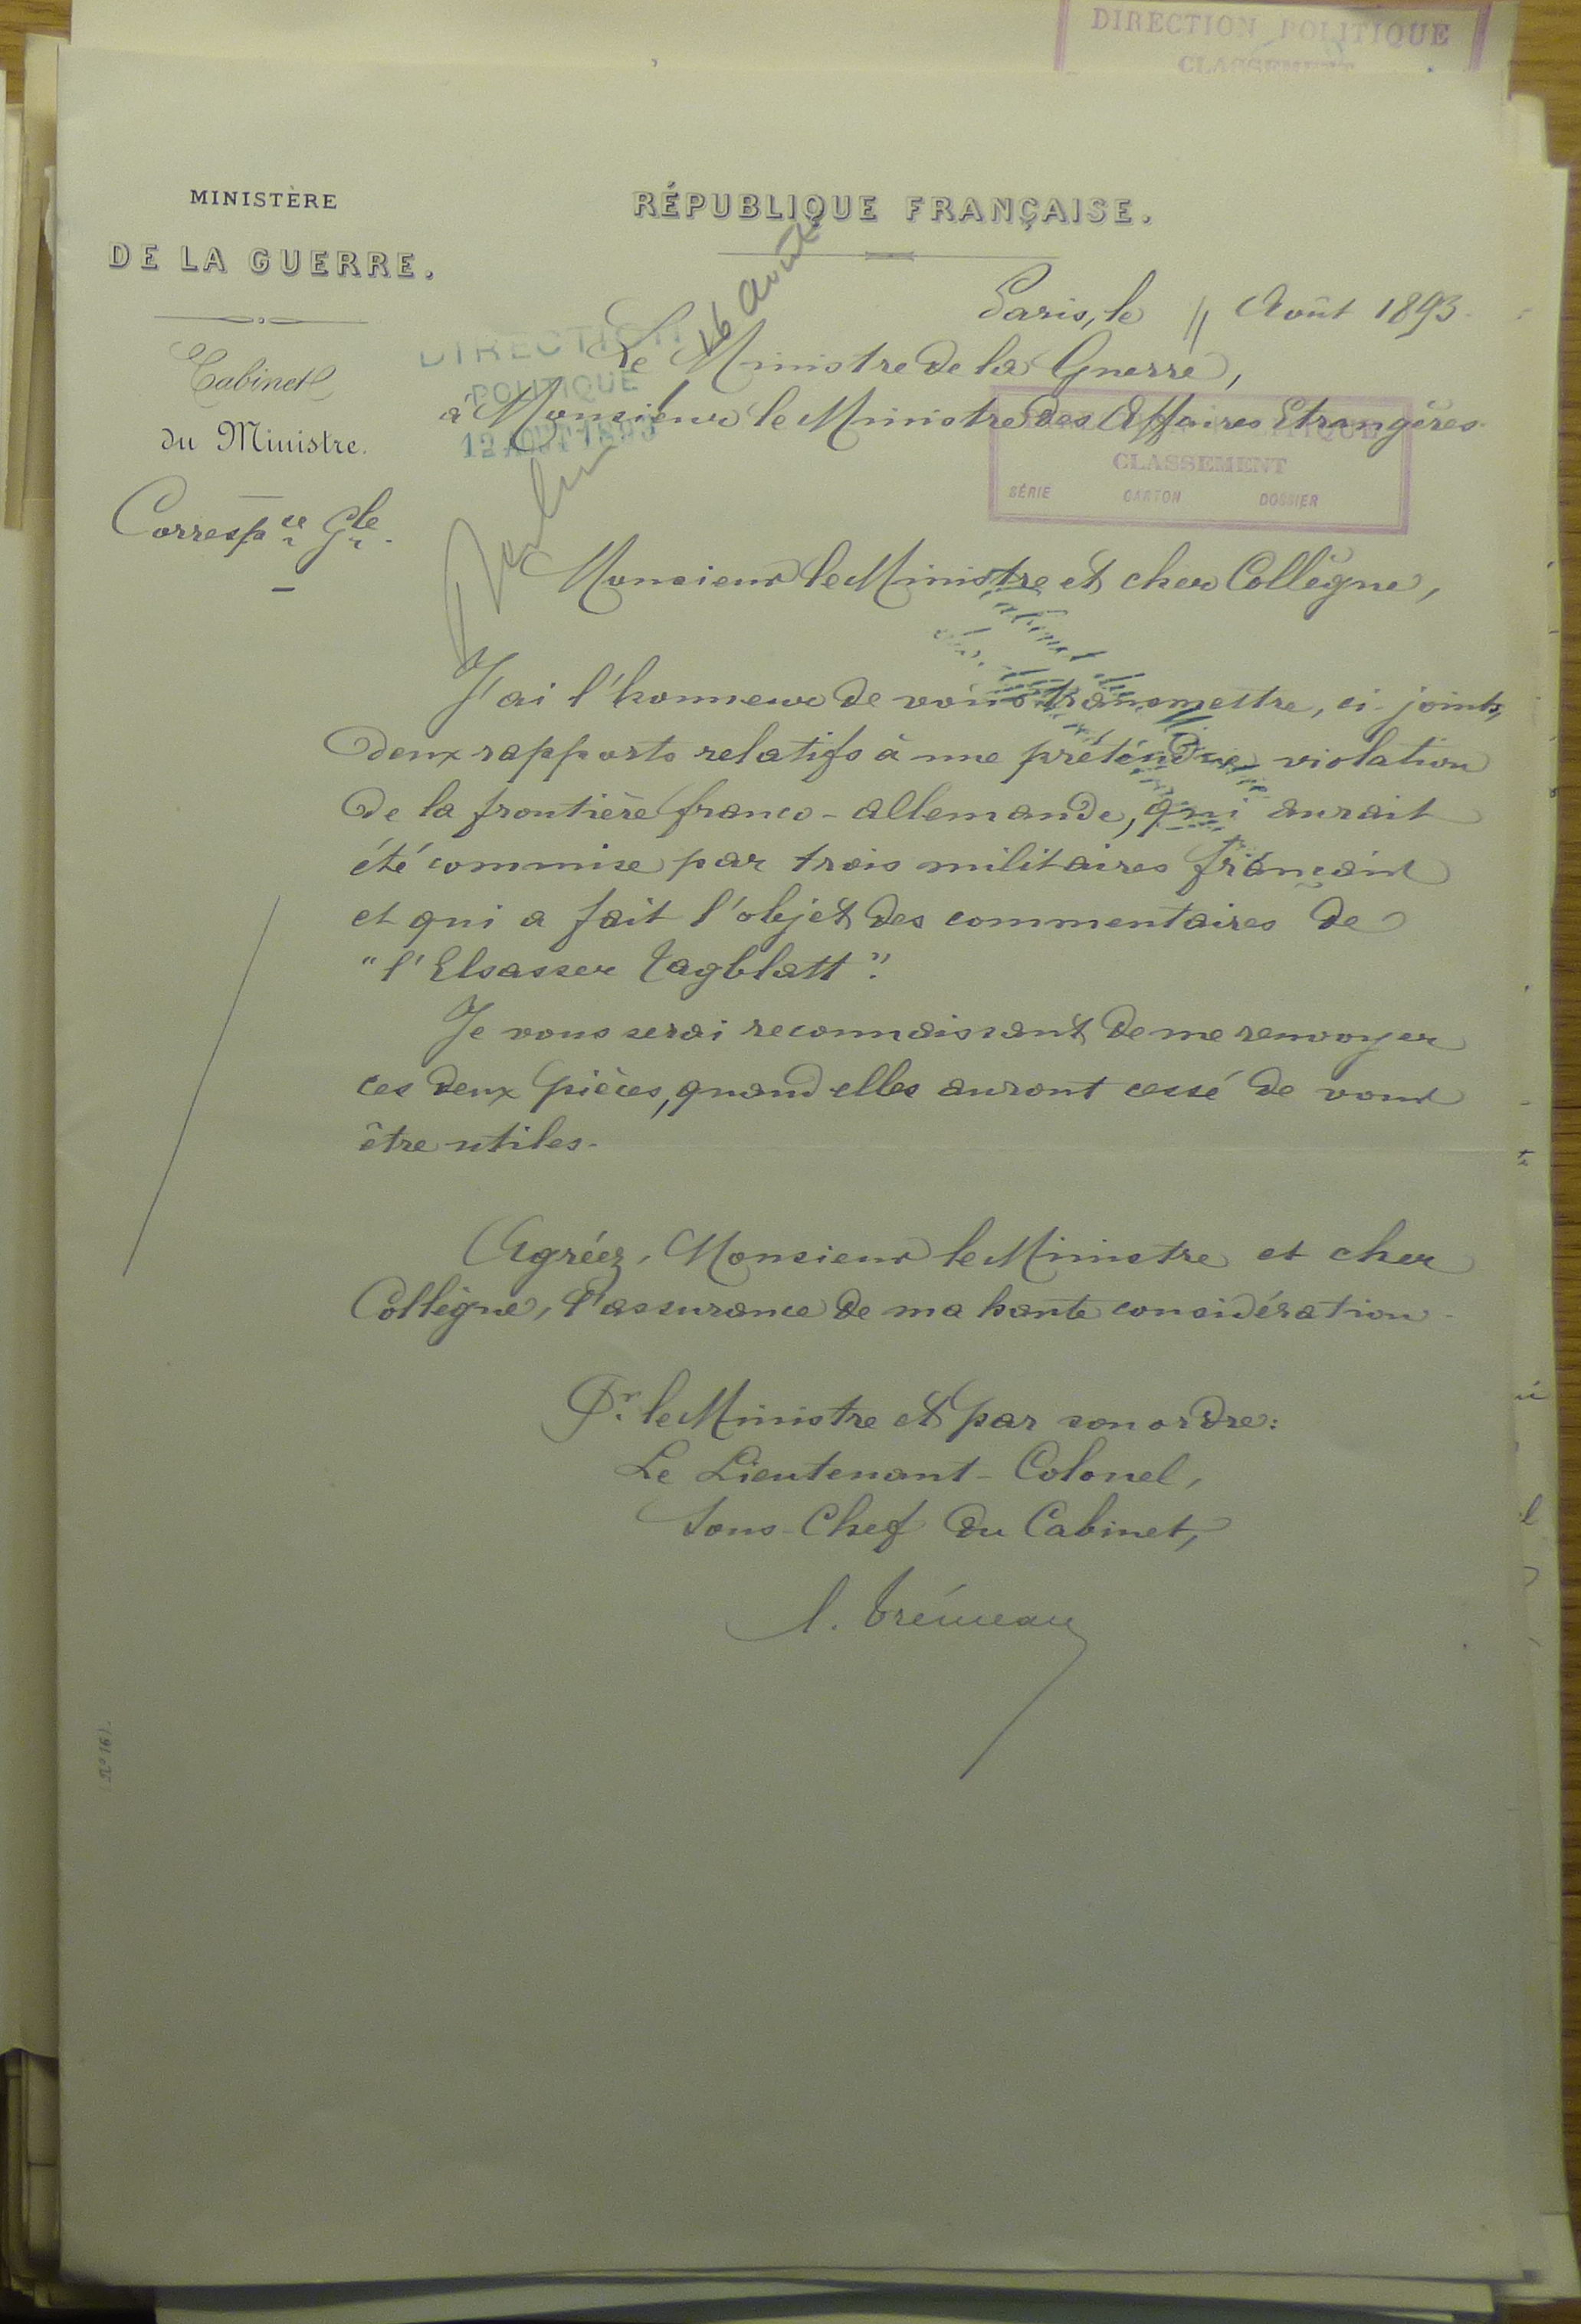 DIRECTION POLITIQUE
CLASSEMENT
MINISTÈRE
DE LA GUERRE.
Cabinet
du Ministre.
Corresp.ce Gle.
RÉPUBLIQUE FRANÇAISE.
16 août
Paris, le 11 Août 1893.
Le Ministre de la Guerre,
à Monsieur le Ministre des Affaires Etrangères.
DIRECTION
POLITIQUE
12 AOUT 1893
CLASSEMENT
SÉRIE CARTON DOSSIER
Berlin
Monsieur le Ministre et cher Collègue,
J'ai l'honneur de vous transmettre, ci-joints,
deux rapports relatifs à une prétendue violation
de la frontière franco-allemande, qui aurait
été commise par trois militaires français
et qui a fait l'objet des commentaires de
"l'Elsasser Tagblatt".
Je vous serai reconnaissant de me renvoyer
ces deux pièces, quand elles auront cessé de vous
être utiles.
Agréez, Monsieur le Ministre et cher
Collègue, l'assurance de ma haute considération.
Pr. le Ministre et par son ordre:
Le Lieutenant-Colonel,
Sous-Chef du Cabinet,